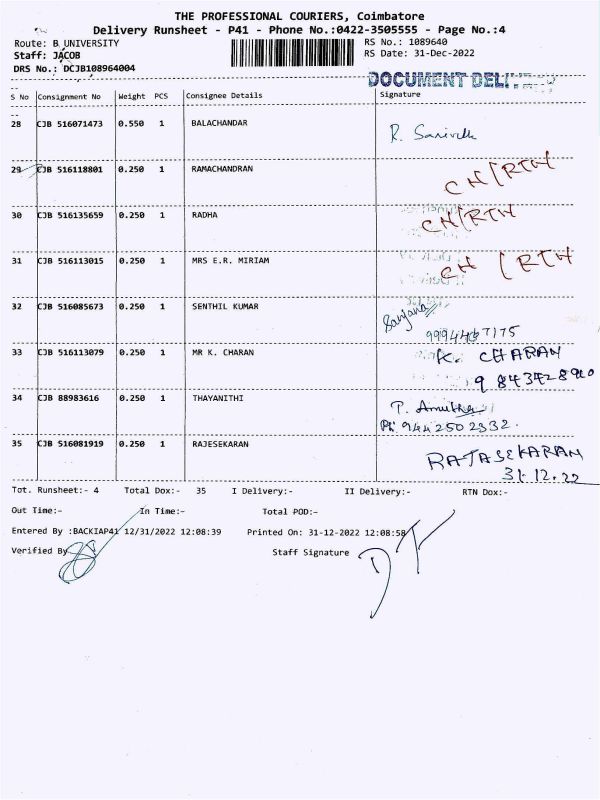 THE PROFESSIONAL COURIERS, Coimbatore
Delivery Runsheet - P41 - Phone No.:0422-3505555 - Page No.:4
Route: B UNIVERSITY RS No.: 1089640
Staff: JACOB RS Date: 31-Dec-2022
DRS No.: DCJB108964004
DOCUMENT
S No Consignment No Weight PCS Consignee Details Signature
28 CJB 516071473 0.550 1 BALACHANDAR R.
29 CJB 516118801 0.250 1 RAMACHANDRAN CH/RTH
30 CJB 516135659 0.250 1 RADHA CH/RTH
31 CJB 516113015 0.250 1 MRS E.R. MIRIAM CH/RTH
32 CJB 516085673 0.250 1 SENTHIL KUMAR Sanjana
9994487175
33 CJB 516113079 0.250 1 MR K. CHARAN K. CHARAN
34 CJB 88983616 0.250 1 THAYANITHI P. Amutha
Ph: 9442502332.
35 CJB 516081919 0.250 1 RAJESEKARAN RAJASEKARAN
31.12.22
Tot. Runsheet:- 4 Total Dox:- 35 I Delivery:- II Delivery:- RTN Dox:-
Out Time:- In Time:- Total POD:-
Entered By :BACKIAP41 12/31/2022 12:08:39 Printed On: 31-12-2022 12:08:58
Verified By Staff Signature